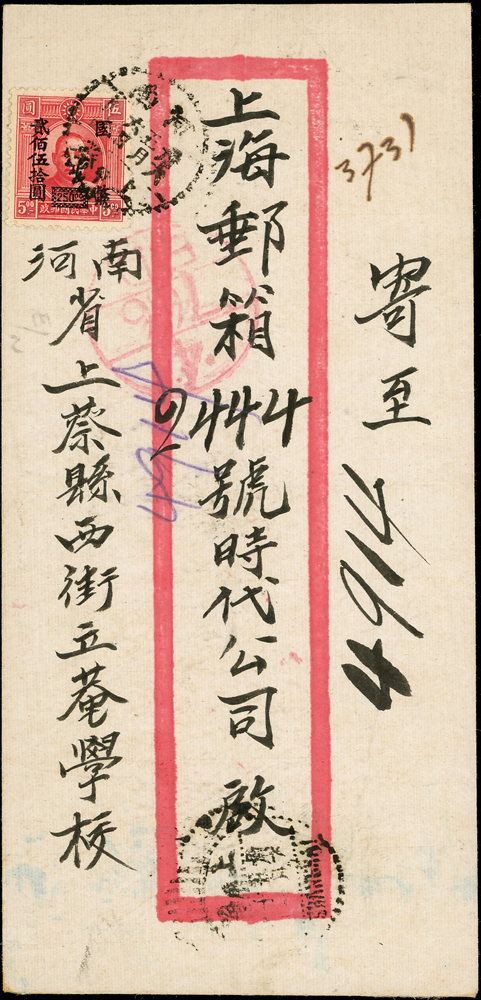 3731
寄至
4914
上海郵箱2444號時代公司 啟
河南省上蔡縣西街立菴學校
國幣
貳佰伍拾圓
250
圓 伍
政郵國民華中